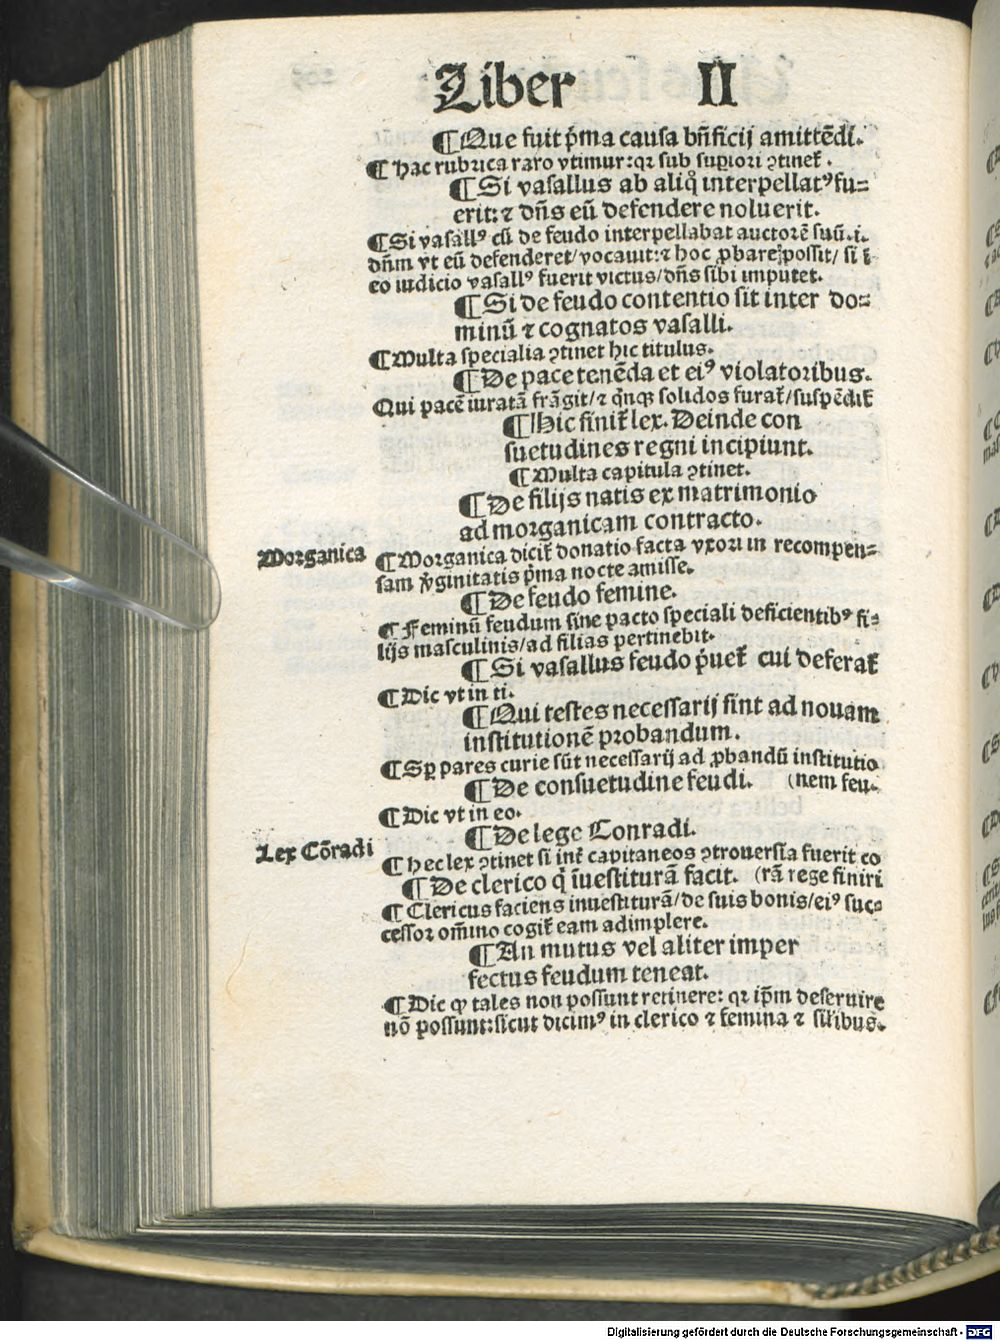 Liber II
¶Que fuit p̄ma causa bn̄ficij amittēdi.
¶Hac rubrica raro vtimur: qꝛ sub supiori ꝯtinet̉.
¶Si vasallus ab aliq̊ interpellatꝰ fu-
erit: ⁊ dn̄s eū defendere noluerit.
¶Si vasallꝰ cū de feudo interpellabat auctorē suū .i.
dn̄m vt eū defenderet/vocauit: ⁊ hoc ꝓbare possit/ si ī
eo iudicio vasallꝰ fuerit victus/dn̄s sibi imputet.
¶Si de feudo contentio sit inter do-
minū ⁊ cognatos vasalli.
¶Multa specialia ꝯtinet hic titulus.
¶De pace tenēda et eiꝰ violatoribus.
Qui pacē iuratā frāgit/⁊ q̄nqꝫ solidos furat̉/suspēdit̉
¶Hic finit̉ lex. Deinde con
suetudines regni incipiunt.
¶Multa capitula ꝯtinet.
¶De filijs natis ex matrimonio
ad morganicam contracto.
Morganica
¶Morganica dicit̉ donatio facta vxori in recompen-
sam v̓ginitatis p̄ma nocte amisse.
¶De feudo femine.
¶Feminū feudum sine pacto speciali deficientibꝰ fi-
lijs masculinis/ad filias pertinebit.
¶Si vasallus feudo p̓uet̉ cui deferat̉
¶Dic vt in ti.
¶Qui testes necessarij sint ad nouam
institutionē probandum.
¶Sꝑ pares curie sūt necessarij ad ꝓbandū institutio
¶De consuetudine feudi. (nem feu.
¶Dic vt in eo.
¶De lege Conradi.
Lex Cōradi
¶Hec lex ꝯtinet si int̉ capitaneos ꝯtrouersia fuerit co
¶De clerico q̓ īuestiturā facit. (rā rege finiri
¶Clericus faciens inuestiturā/de suis bonis/eiꝰ suc-
cessor om̄ino cogit̉ eam adimplere.
¶An mutus vel aliter imper
fectus feudum teneat.
¶Dic ꝙ tales non possunt retinere: qꝛ ip̄m deseruire
nō possunt: sicut dicimꝰ in clerico ⁊ femina ⁊ silibus.
Digitalisierung gefördert durch die Deutsche Forschungsgemeinschaft - DFG